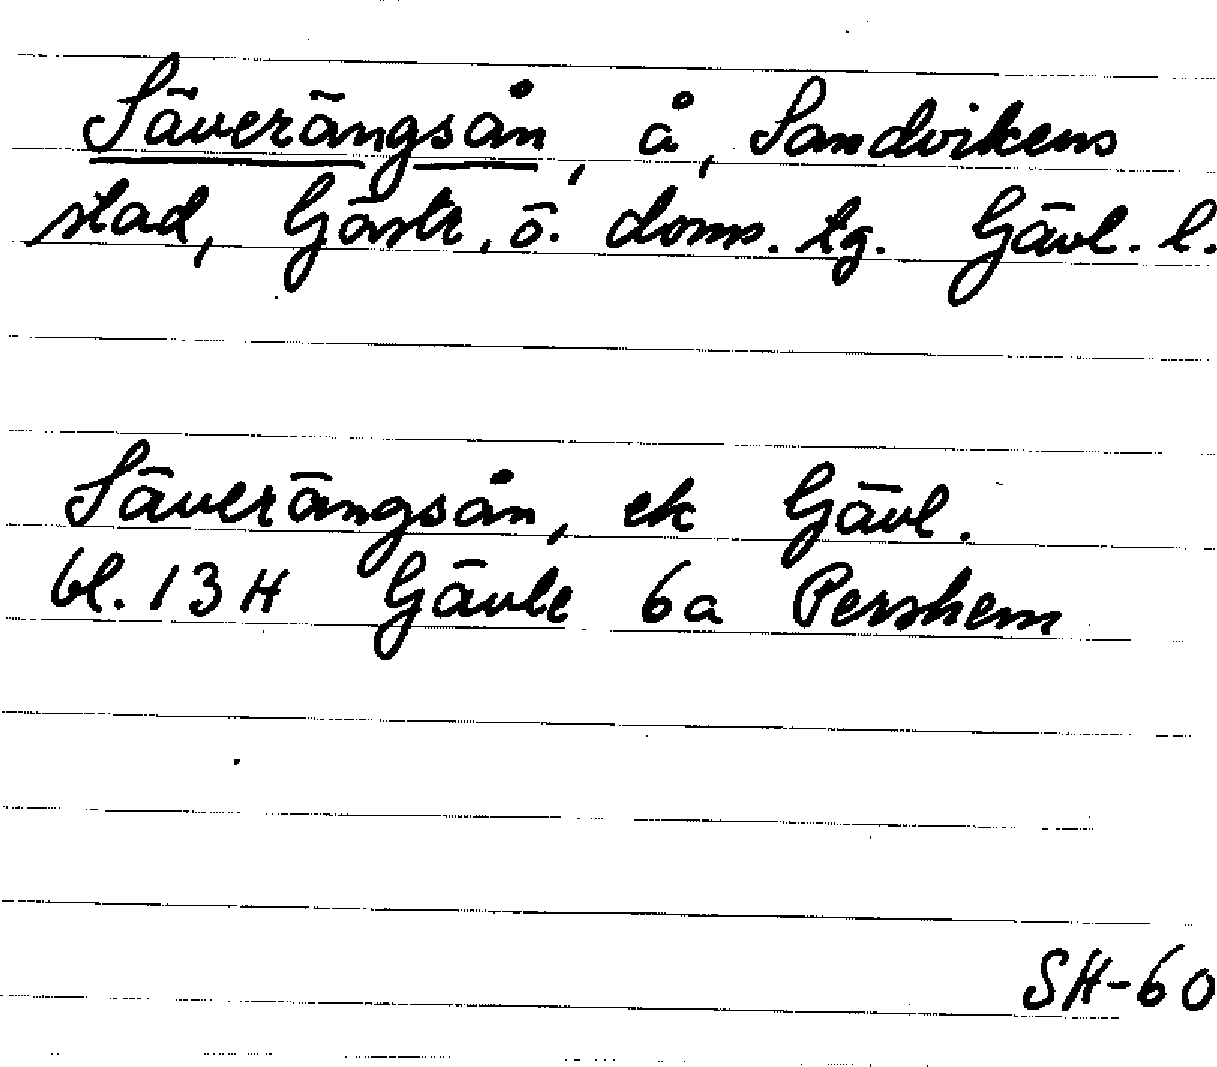 Säverängsån, å, Sandvikens
stad, Gästr., ö. doms. tg. Gävl. l.
Säverängsån, ek Gävl.
bl. 13 H Gävle 6a Pershem
SH-60